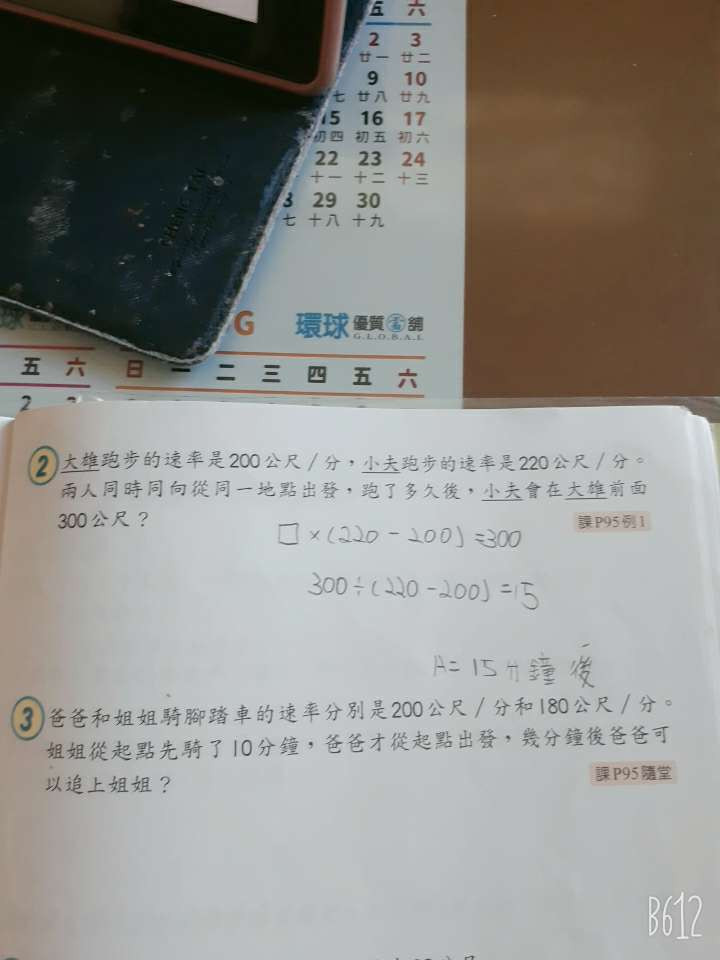 五 六
2 3
廿一 廿二
9 10
七 廿八 廿九
15 16 17
初四 初五 初六
22 23 24
十一 十二 十三
29 30
七 十八 十九
G 環球 優質當舖
G.L.O.B.A.L
五 六 日 一 二 三 四 五 六
2
2 大雄跑步的速率是200公尺/分,小夫跑步的速率是220公尺/分。
兩人同時同向從同一地點出發,跑了多久後,小夫會在大雄前面
300公尺?
課P95例1
□×(220-200)=300
300÷(220-200)=15
A=15分鐘後
3 爸爸和姐姐騎腳踏車的速率分別是200公尺/分和180公尺/分。
姐姐從起點先騎了10分鐘,爸爸才從起點出發,幾分鐘後爸爸可
以追上姐姐?
課P95隨堂
B612